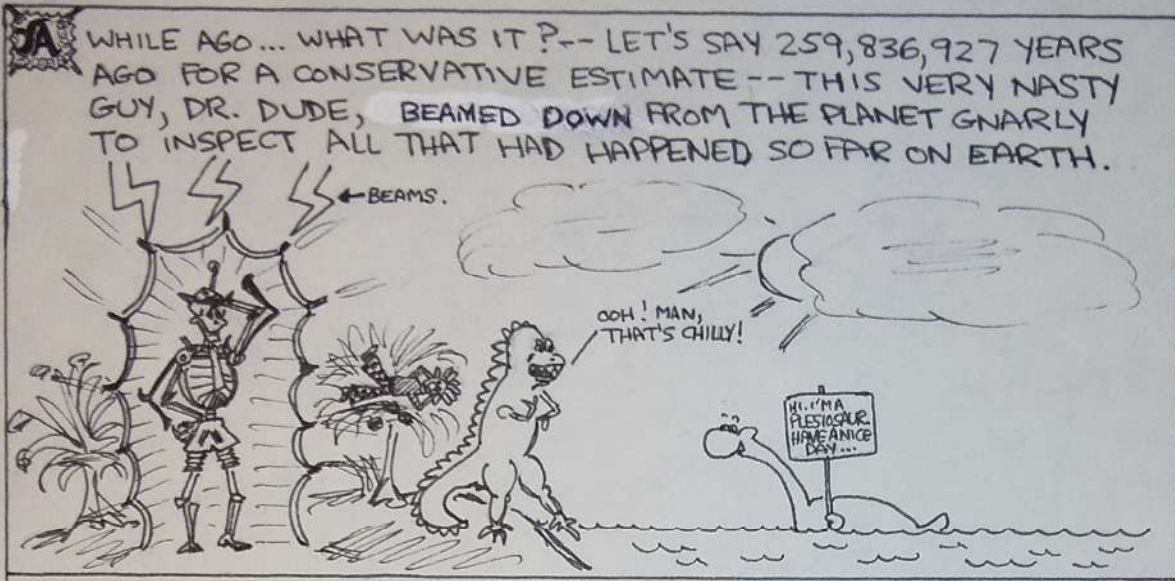 A WHILE AGO... WHAT WAS IT?-- LET'S SAY 259,836,927 YEARS
AGO FOR A CONSERVATIVE ESTIMATE -- THIS VERY NASTY
GUY, DR. DUDE, BEAMED DOWN FROM THE PLANET GNARLY
TO INSPECT ALL THAT HAD HAPPENED SO FAR ON EARTH.
BEAMS.
OOH! MAN,
THAT'S CHILLY!
HI. I'M A
PLESIOSAUR.
HAVE A NICE
DAY...